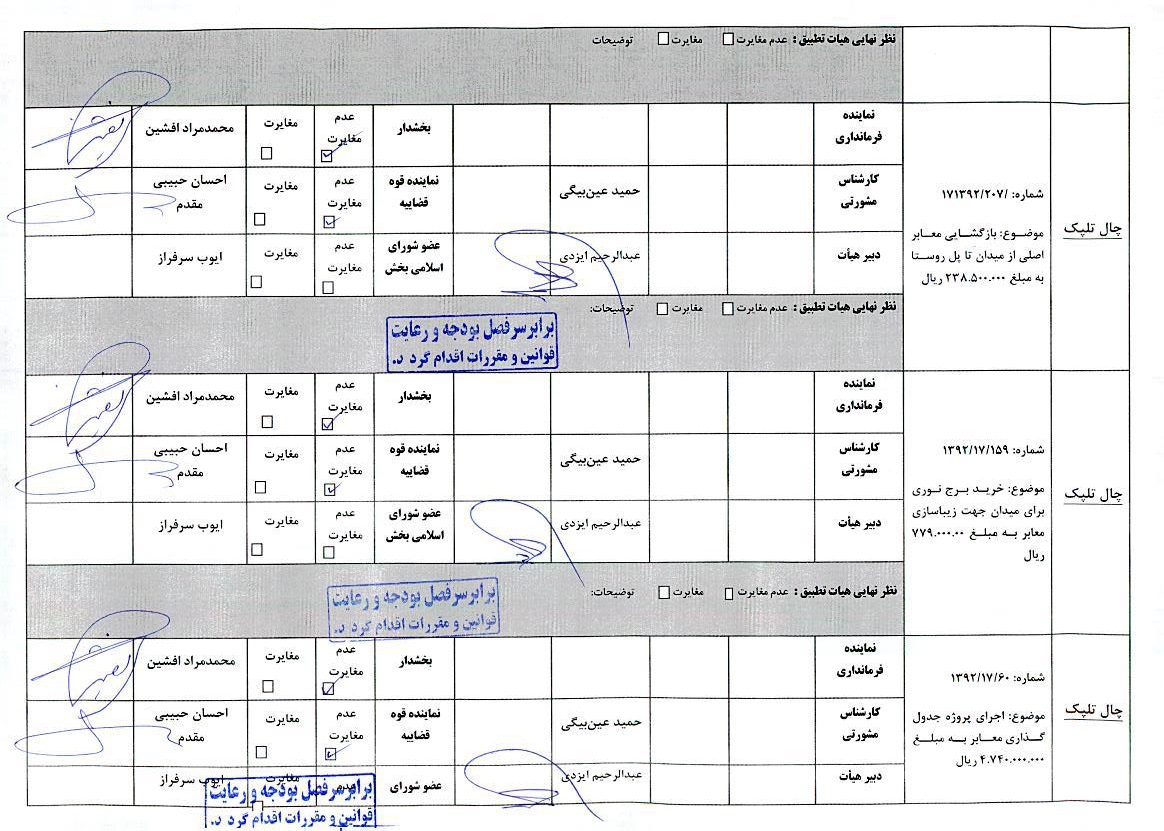 نظر نهایی هیات تطبیق: عدم مغایرت □ مغایرت □ توضیحات
چال تلپک
شماره: /۱۷۱۳۹۲/۲۰۷
موضوع: بازگشایی معابر
اصلی از میدان تا پل روستا
به مبلغ ۲۳۸.۵۰۰.۰۰۰ ریال
نماینده فرمانداری
بخشدار
عدم مغایرت ☑
مغایرت □
محمدمراد افشین
کارشناس مشورتی
حمید عین‌بیگی
نماینده قوه قضاییه
عدم مغایرت ☑
مغایرت □
احسان حبیبی مقدم
دبیر هیأت
عبدالرحیم ایزدی
عضو شورای اسلامی بخش
عدم مغایرت □
مغایرت □
ایوب سرفراز
نظر نهایی هیات تطبیق: عدم مغایرت □ مغایرت □ توضیحات:
برابر سرفصل بودجه و رعایت
قوانین و مقررات اقدام گرد د.
چال تلپک
شماره: ۱۳۹۲/۱۷/۱۵۹
موضوع: خرید برج نوری
برای میدان جهت زیباسازی
معابر به مبلغ ۷۷۹.۰۰۰.۰۰
ریال
نماینده فرمانداری
بخشدار
عدم مغایرت ☑
مغایرت □
محمدمراد افشین
کارشناس مشورتی
حمید عین‌بیگی
نماینده قوه قضاییه
عدم مغایرت ☑
مغایرت □
احسان حبیبی مقدم
دبیر هیأت
عبدالرحیم ایزدی
عضو شورای اسلامی بخش
عدم مغایرت □
مغایرت □
ایوب سرفراز
نظر نهایی هیات تطبیق: عدم مغایرت □ مغایرت □ توضیحات:
برابر سرفصل بودجه و رعایت
قوانین و مقررات اقدام گرد د.
چال تلپک
شماره: ۱۳۹۲/۱۷/۶۰
موضوع: اجرای پروژه جدول
گذاری معابر به مبلغ
۴.۷۴۰.۰۰۰.۰۰۰ ریال
نماینده فرمانداری
بخشدار
عدم مغایرت ☑
مغایرت □
محمدمراد افشین
کارشناس مشورتی
حمید عین‌بیگی
نماینده قوه قضاییه
عدم مغایرت ☑
مغایرت □
احسان حبیبی مقدم
دبیر هیأت
عبدالرحیم ایزدی
عضو شورای
عدم
مغایرت
ایوب سرفراز
برابر سرفصل بودجه و رعایت
قوانین و مقررات اقدام گرد د.